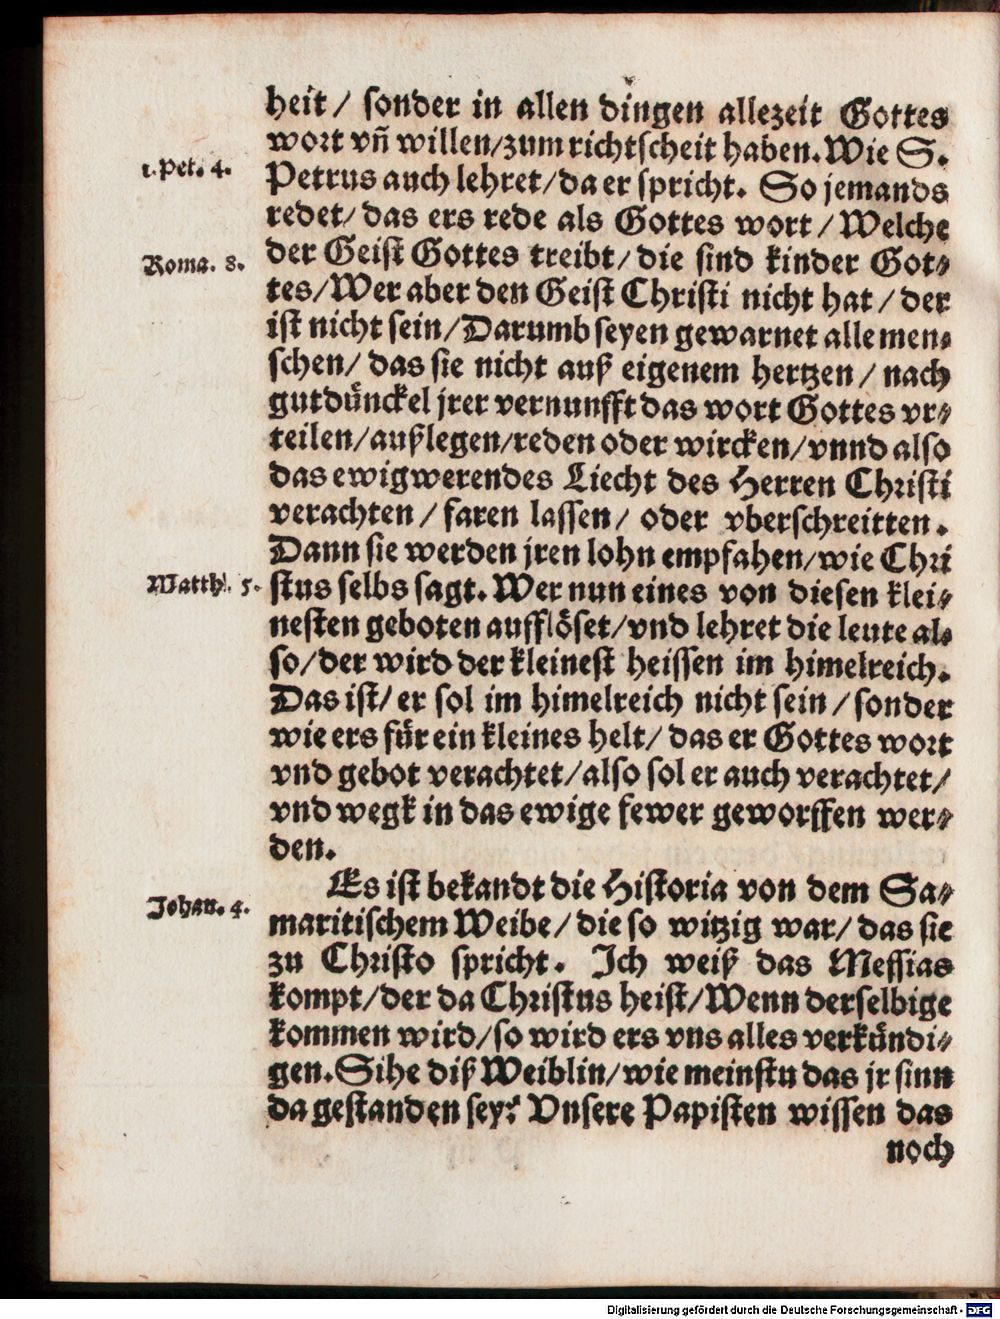 heit/ sonder in allen dingen allezeit Gottes
wort vñ willen/zum richtscheit haben. Wie S.
1. Pet. 4.
Petrus auch lehret/da er spricht. So jemands
redet/das ers rede als Gottes wort/Welche
Roma. 8.
der Geist Gottes treibt/die sind kinder Got-
tes/Wer aber den Geist Christi nicht hat/der
ist nicht sein/Darumb seyen gewarnet alle men-
schen/das sie nicht auß eigenem hertzen/nach
gutdünckel jrer vernunfft das wort Gottes vr-
teilen/außlegen/reden oder wircken/vnnd also
das ewigwerendes Liecht des Herren Christi
verachten/faren lassen/oder vberschreitten.
Dann sie werden jren lohn empfahen/wie Chri
Matth. 5.
stus selbs sagt. Wer nun eines von diesen klei-
nesten geboten aufflöset/vnd lehret die leute al-
so/der wird der kleinest heissen im himelreich.
Das ist/er sol im himelreich nicht sein/sonder
wie ers für ein kleines helt/das er Gottes wort
vnd gebot verachtet/also sol er auch verachtet/
vnd wegk in das ewige fewer geworffen wer-
den.
Es ist bekandt die Historia von dem Sa-
Johan. 4.
maritischem Weibe/die so witzig war/das sie
zu Christo spricht. Ich weiß das Messias
kompt/der da Christus heist/Wenn derselbige
kommen wird/so wird ers vns alles verkündi-
gen. Sihe diß Weiblin/wie meinstu das jr sinn
da gestanden sey? Vnsere Papisten wissen das
noch
Digitalisierung gefördert durch die Deutsche Forschungsgemeinschaft - DFG